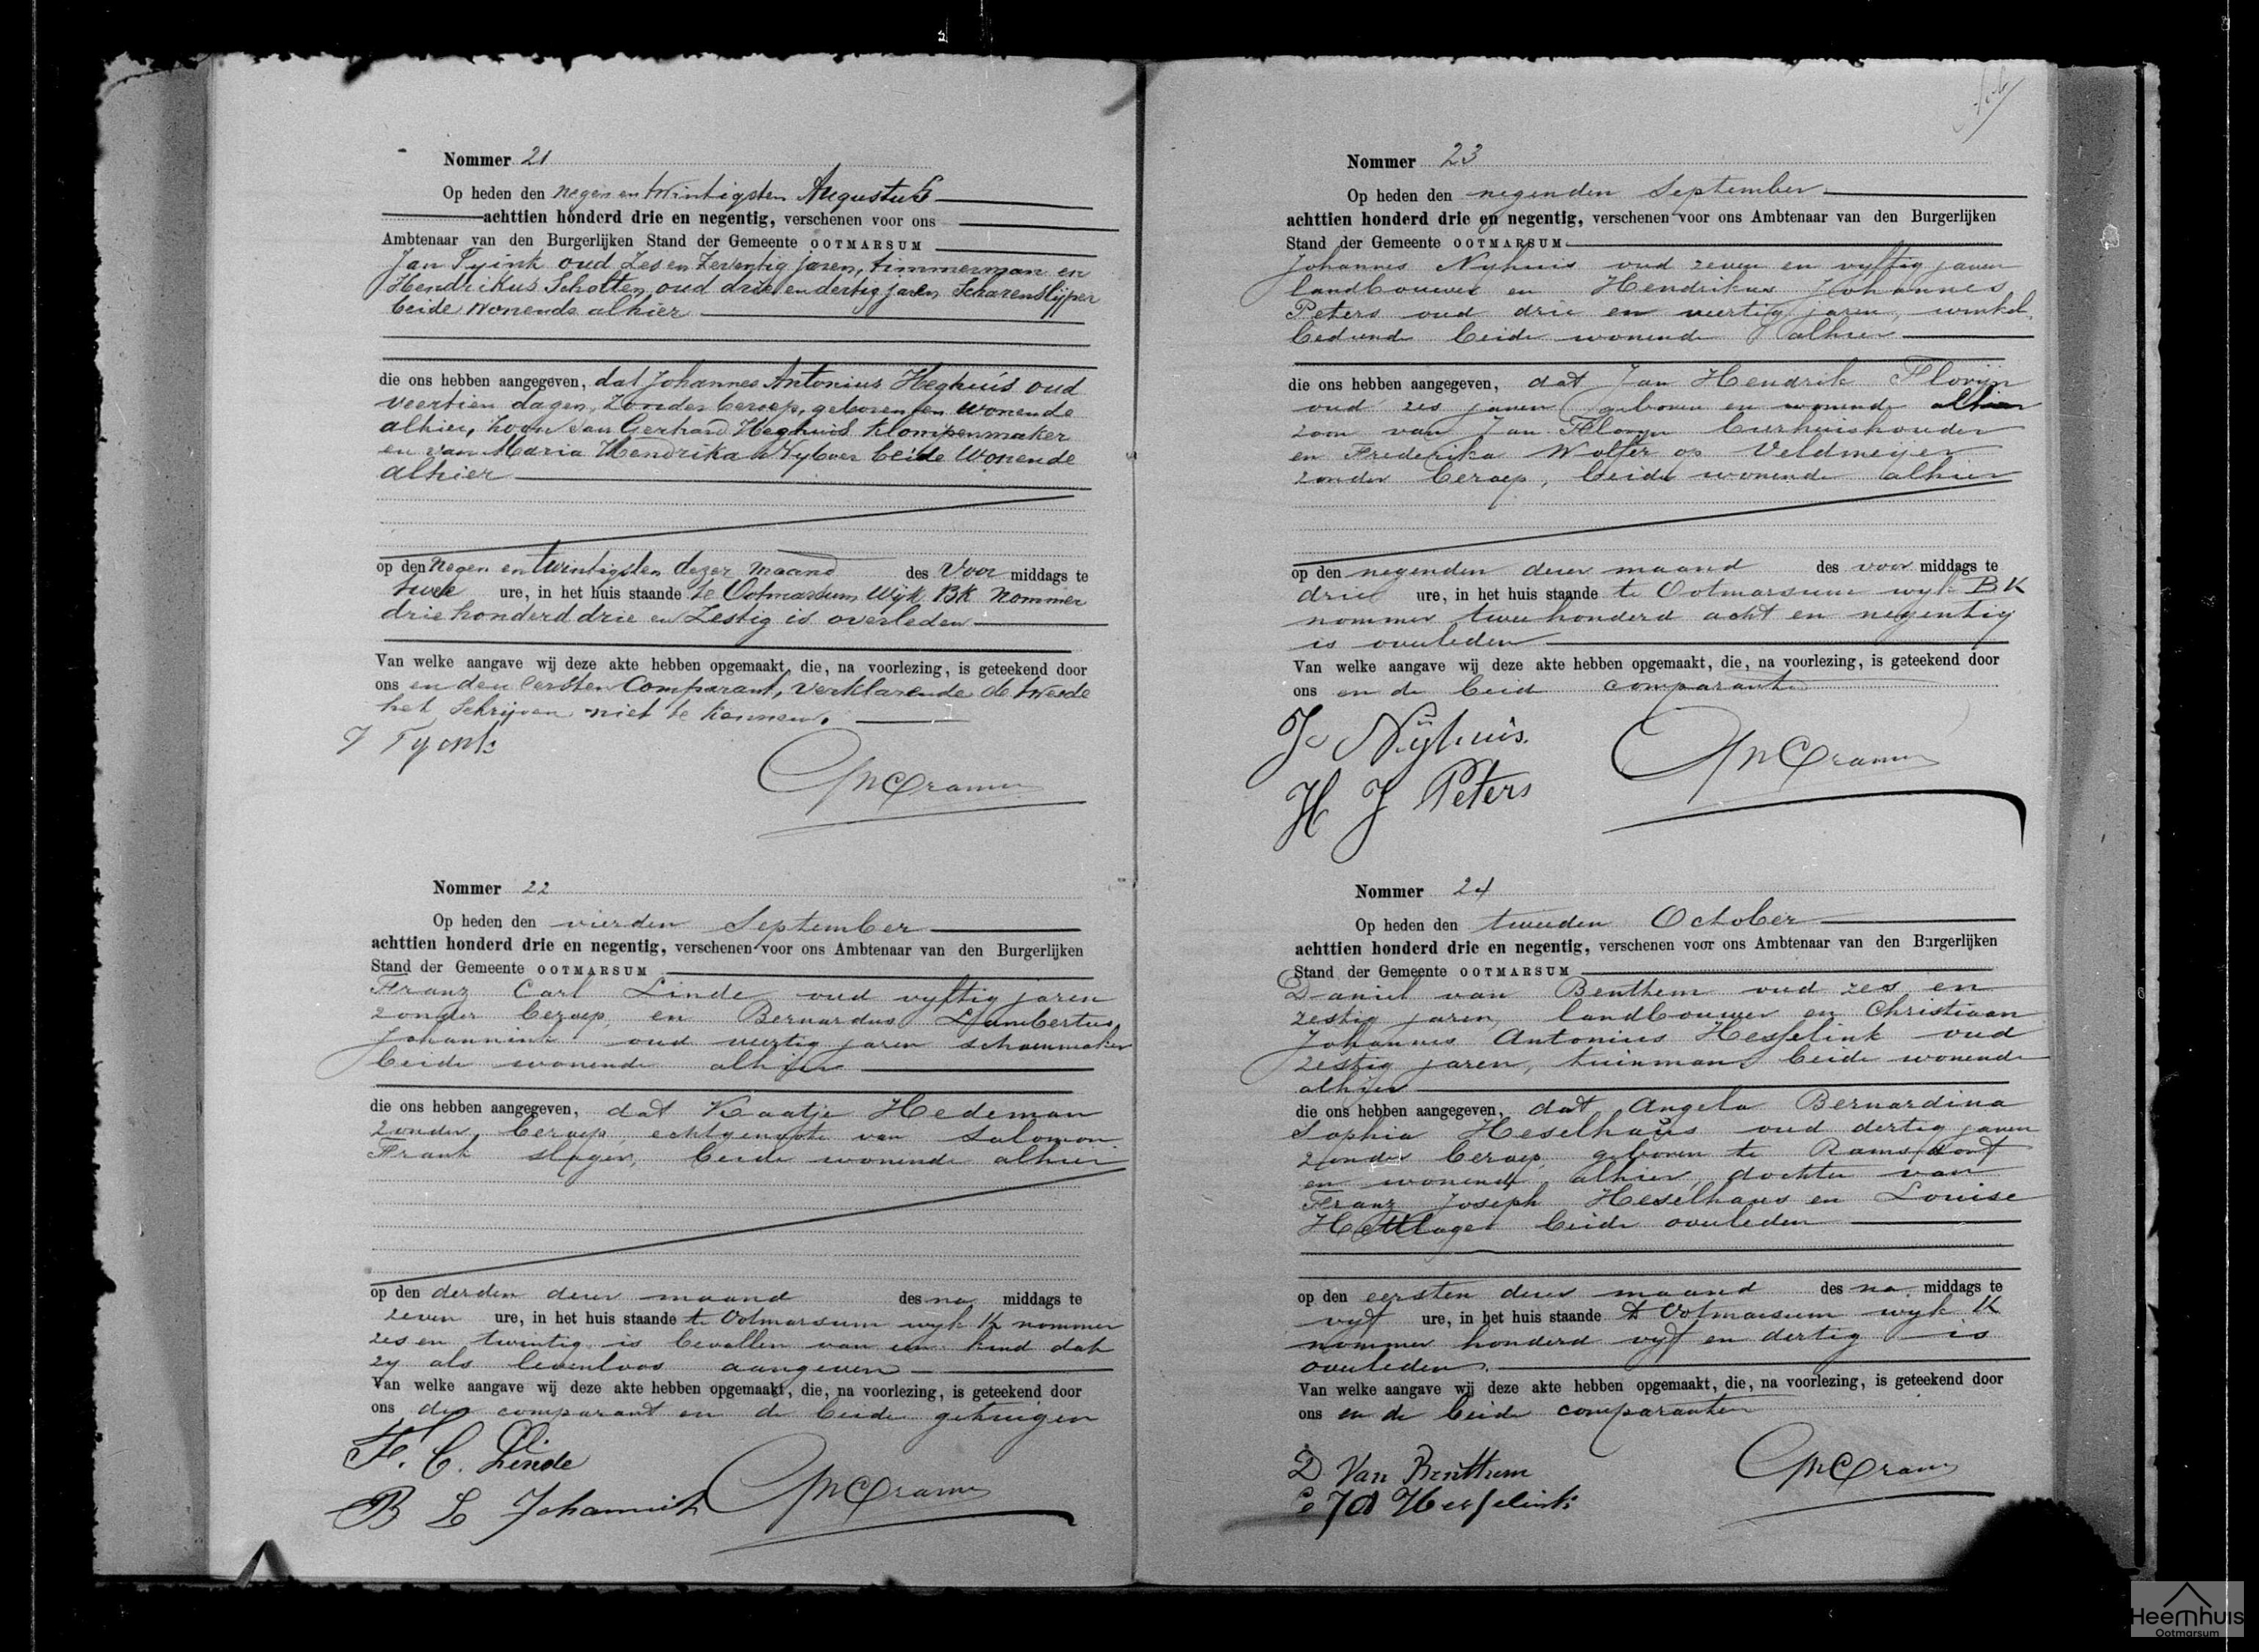 Nommer 21
Op heden den negen en twintigsten Augustus
achttien honderd drie en negentig, verschenen voor ons
Ambtenaar van den Burgerlijken Stand der Gemeente OOTMARSUM
Jan Tyink oud Zes en Zeventig jaren, timmerman en
Hendrikus Scholten, oud drie en dertig jaren Scharenslijper
beide wonende alhier
die ons hebben aangegeven, dat Johannes Antonius Heghuis oud
veertien dagen, Zonder beroep, geboren en wonende
alhier, Zoon van Gerhard Heghuis klompenmaker
en van Maria Hendrika beide Wonende
alhier
op den Negen en twintigsten dezer maand des Voor middags te
twee ure, in het huis staande te Ootmarsum Wijk BK Nommer
drie honderd drie en Zestig is overleden
Van welke aangave wij deze akte hebben opgemaakt, die, na voorlezing, is geteekend door
ons en den eersten Comparant, verklarende de tweede
het Schrijven niet te kennen.
J Tyink
Cramer
Nommer 22
Op heden den vierden September
achttien honderd drie en negentig, verschenen voor ons Ambtenaar van den Burgerlijken
Stand der Gemeente OOTMARSUM
Franz Carl Linde oud vyftig jaren
zonder beroep, en Bernardus Lambertus
Johannink oud veertig jaren schoenmaker
beide wonende alhier
die ons hebben aangegeven, dat Kaatje Hedeman
zonder beroep, echtgenoote van Salomon
Frank slager, beide wonende alhier
op den derden dezer maand des na middags te
zeven ure, in het huis staande te Ootmarsum wyk K nommer
zes en twintig is bevallen van een kind dat
zy als levenloos aangeven
Van welke aangave wij deze akte hebben opgemaakt, die, na voorlezing, is geteekend door
ons den comparant en de beide getuigen
F. C. Linde
B L Johannink
Cramer
Nommer 23
Op heden den negenden September
achttien honderd drie en negentig, verschenen voor ons Ambtenaar van den Burgerlijken
Stand der Gemeente OOTMARSUM
Johannes Nyhuis oud zeven en vyftig jaren
landbouwer en Hendrikus Johannes
Peters oud drie en veertig jaren, winkel
bediende beide wonende alhier
die ons hebben aangegeven, dat Jan Hendrik Florijn
oud zes jaren geboren en wonende alhier
zoon van Jan Florijn bierhuishouder
en Frederika Wolfer op Veldmeijer
zonder beroep, beide wonende alhier
op den negenden dezer maand des voor middags te
drie ure, in het huis staande te Ootmarsum wyk BK
nommer twee honderd acht en negentig
is overleden
Van welke aangave wij deze akte hebben opgemaakt, die, na voorlezing, is geteekend door
ons en de beide comparanten
J. Nijhuis.
H J Peters
Cramer
Nommer 24
Op heden den tweeden October
achttien honderd drie en negentig, verschenen voor ons Ambtenaar van den Burgerlijken
Stand der Gemeente OOTMARSUM
Daniel van Benthem oud zes en
zestig jaren, landbouwer en Christiaan
Johannes Antonius Hesselink oud
zestig jaren, tuinman, beide wonende
alhier
die ons hebben aangegeven, dat Angela Bernardina
Sophia Heselhaus oud dertig jaren
zonder beroep, geboren te Ramsdorf
en wonende alhier, dochter van
Franz Joseph Heselhaus en Louise
Hettlager beide overleden
op den eersten dezer maand des na middags te
vyf ure, in het huis staande te Ootmarsum wyk K
nommer honderd vyf en dertig is
overleden.
Van welke aangave wij deze akte hebben opgemaakt, die, na voorlezing, is geteekend door
ons en de beide comparanten
D Van Benthem
C J A Hesselink
Cramer
Heemhuis
Ootmarsum